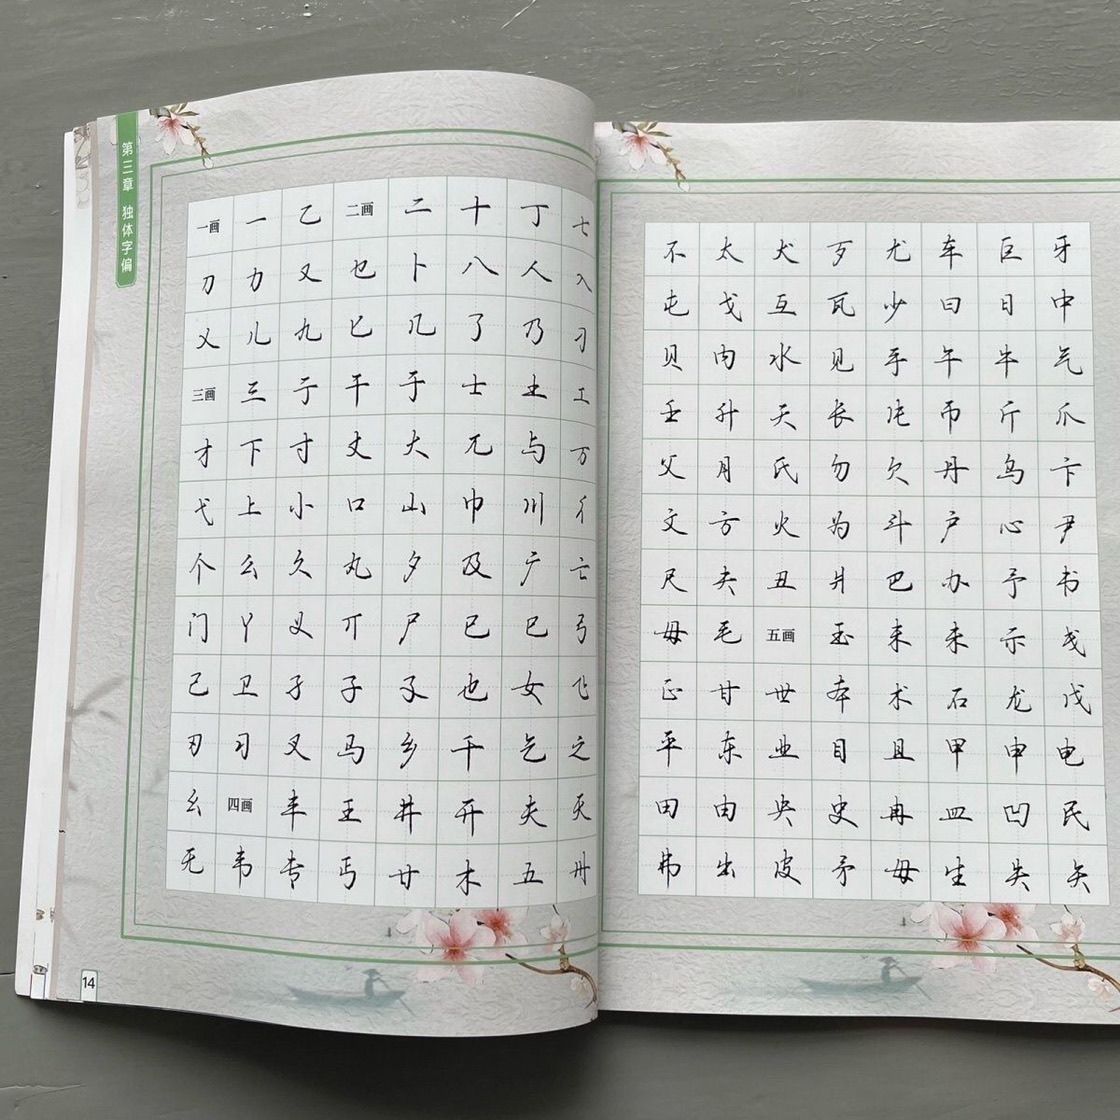 第三章 独体字偏
一画 一 乙 二画 二 十 丁 七
刀 力 又 也 卜 八 人 入
乂 儿 九 匕 几 了 乃 刁
三画 三 亍 干 于 士 土 工
才 下 寸 丈 大 兀 与 万
弋 上 小 口 山 巾 川 彳
个 么 久 丸 夕 及 广 亡
门 丫 义 丌 尸 已 巳 弓
己 卫 孑 子 孓 也 女 飞
刃 习 叉 马 乡 千 乞 之
幺 四画 丰 王 井 开 夫 天
无 韦 专 丐 廿 木 五 冉
14
不 太 犬 歹 尤 车 巨 牙
屯 戈 互 瓦 少 曰 日 中
贝 内 水 见 手 午 牛 气
壬 升 夭 长 币 斤 爪
父 月 氏 勿 欠 丹 乌 卞
文 方 火 为 斗 户 心 尹
尺 夫 丑 爿 巴 办 予 书
毋 毛 五画 玉 耒 未 示 戋
正 甘 世 本 术 石 龙 戊
平 东 业 目 且 甲 申 电
田 由 央 史 冉 皿 凹 民
弗 出 皮 矛 母 生 失 矢